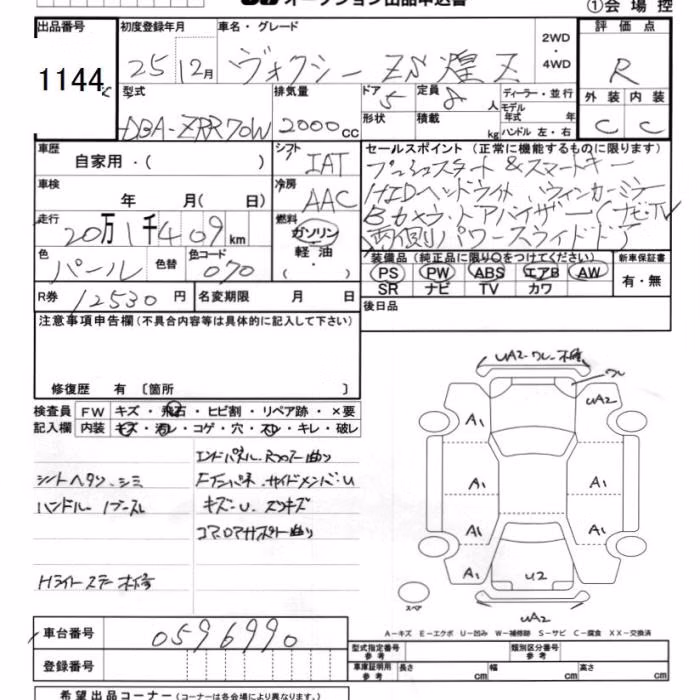 オークション出品申込書
①会場控
出品番号 初度登録年月 車名・グレード 2WD・4WD 評価点
1144 25 12月 ヴォクシー ZS 煌Z R
型式 排気量 ドア 5 定員 8人 ディーラー・並行 外装 内装
DBA-ZRR70W 2000cc 形状 積載 kg モデル年式 年 ハンドル 左・右 C C
車歴 自家用・( ) シフト IAT セールスポイント (正常に機能するものに限ります)
プッシュスタート&スマートキー
車検 年 月( 日) 冷房 AAC HIDヘッドライト ウィンカーミラー
走行 20万1千409km 燃料 ガソリン・軽油・( ) Bカメラ・ドアバイザー ナビTV
両側パワースライドドア
色 パール 色替 色コード 070 装備品(純正品に限り○をつけてください) 新車保証書
PS PW ABS エアB AW 有・無
SR ナビ TV カワ
R券 12530円 名変期限 月 日 後日品
注意事項申告欄(不具合内容等は具体的に記入して下さい)
修復歴 有 〔箇所 〕
検査員記入欄 FW キズ・飛石・ヒビ割・リペア跡・×要
内装 キズ・汚レ・コゲ・穴・スレ・キレ・破レ
エンドパネル、Rフロアー曲り
シートヘタリ、シミ
ハンドル
サイドメンバーU
キズ・U
コアロアサポート曲り
Hライトステー補修
UA2・ワレ・補修
ワレ
UA2
A1
A1 A1
A1 A1
A1 U2
UA2
スペア
A−キズ E−エクボ U−凹み W−補修跡 S−サビ C−腐食 XX−交換済
車台番号 0596990
型式指定番号 参考 類別区分番号 参考
登録番号 車庫証明用 参考 長さ cm 幅 cm 高さ cm
希望出品コーナー(コーナーは各会場により異なります。)